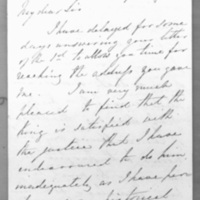 My dear Sir
I have delayed for some
days answering your letter
of the 3rd to allow for time for
reaching the address you gave
me. I am very much
pleased to find that the
King is satisfied with
the justice that I have
endeavoured to do him,
inadequately as I have
historical